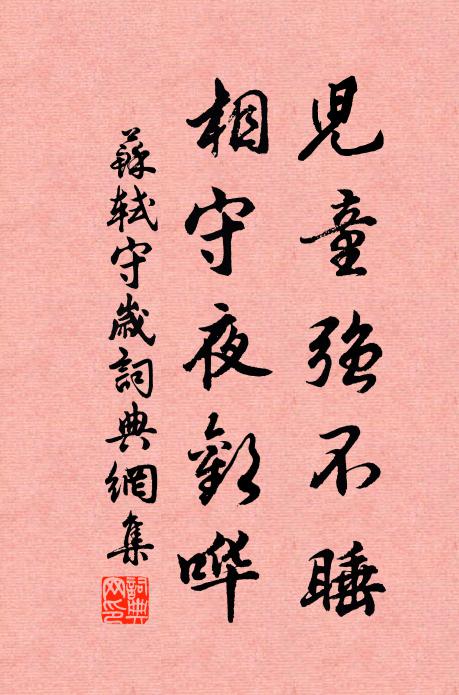 兒童強不睡
相守夜歡哗
蘇軾守歲詞典網集
詞典网印